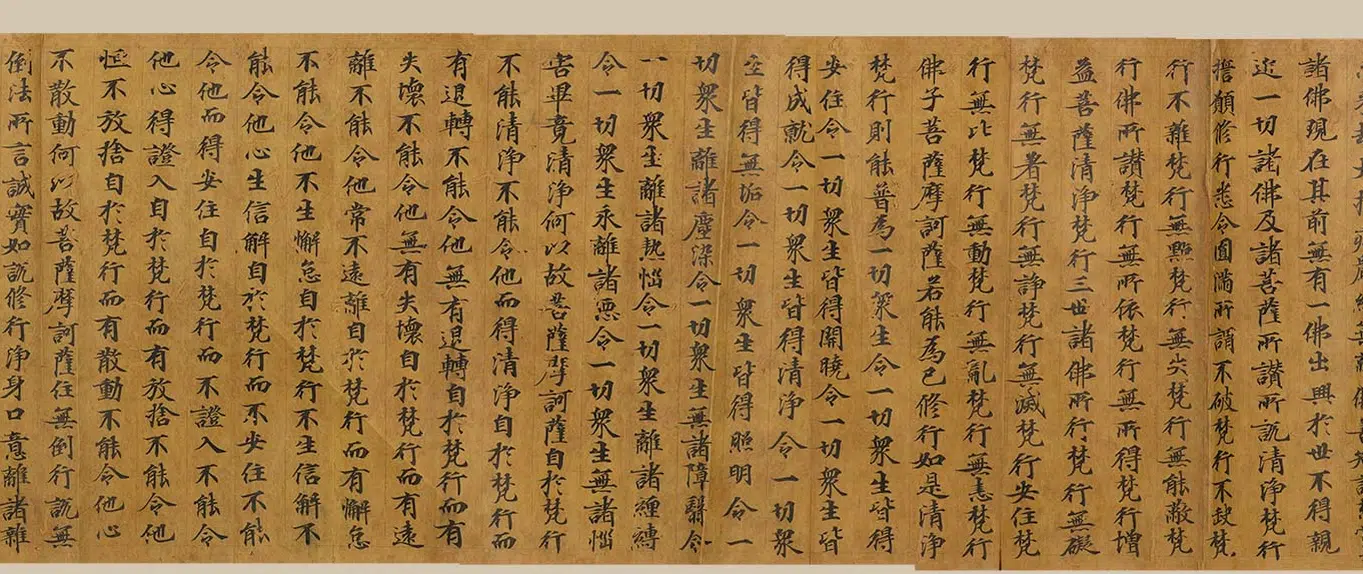 諸佛現在其前無有一佛出興於世不得親
近一切諸佛及諸菩薩所讚所說清淨梵行
擔願修行悉令圓滿所謂不破梵行不缺梵
行不雜梵行無點梵行無失梵行無能蔽梵
行佛所讚梵行無所依梵行無所得梵行增
益菩薩清淨梵行三世諸佛所行梵行無礙
梵行無著梵行無諍梵行無滅梵行安住梵
行無比梵行無動梵行無亂梵行無恚梵行
佛子菩薩摩訶薩若能為己修行如是清淨
梵行則能普為一切眾生令一切眾生皆得
安住令一切眾生皆得開曉令一切眾生皆
得成就令一切眾生皆得清淨令一切眾
生皆得無垢令一切眾生皆得照明令一
切眾生離諸塵染令一切眾生無諸障翳令
一切眾生離諸熱惱令一切眾生離諸纏縛
令一切眾生永離諸惡令一切眾生無諸惱
害畢竟清淨何以故菩薩摩訶薩自於梵行
不能清淨不能令他而得清淨自於梵行而
有退轉不能令他無有退轉自於梵行而有
失壞不能令他無有失壞自於梵行而有遠
離不能令他常不遠離自於梵行而有懈怠
不能令他不生懈怠自於梵行不生信解不
能令他心生信解自於梵行而不安住不能
令他而得安住自於梵行而不證入不能令
他心得證入自於梵行而有放捨不能令他
恒不放捨自於梵行而有散動不能令他心
不散動何以故菩薩摩訶薩住無倒行說無
倒法所言誠實如說修行淨身口意離諸雜